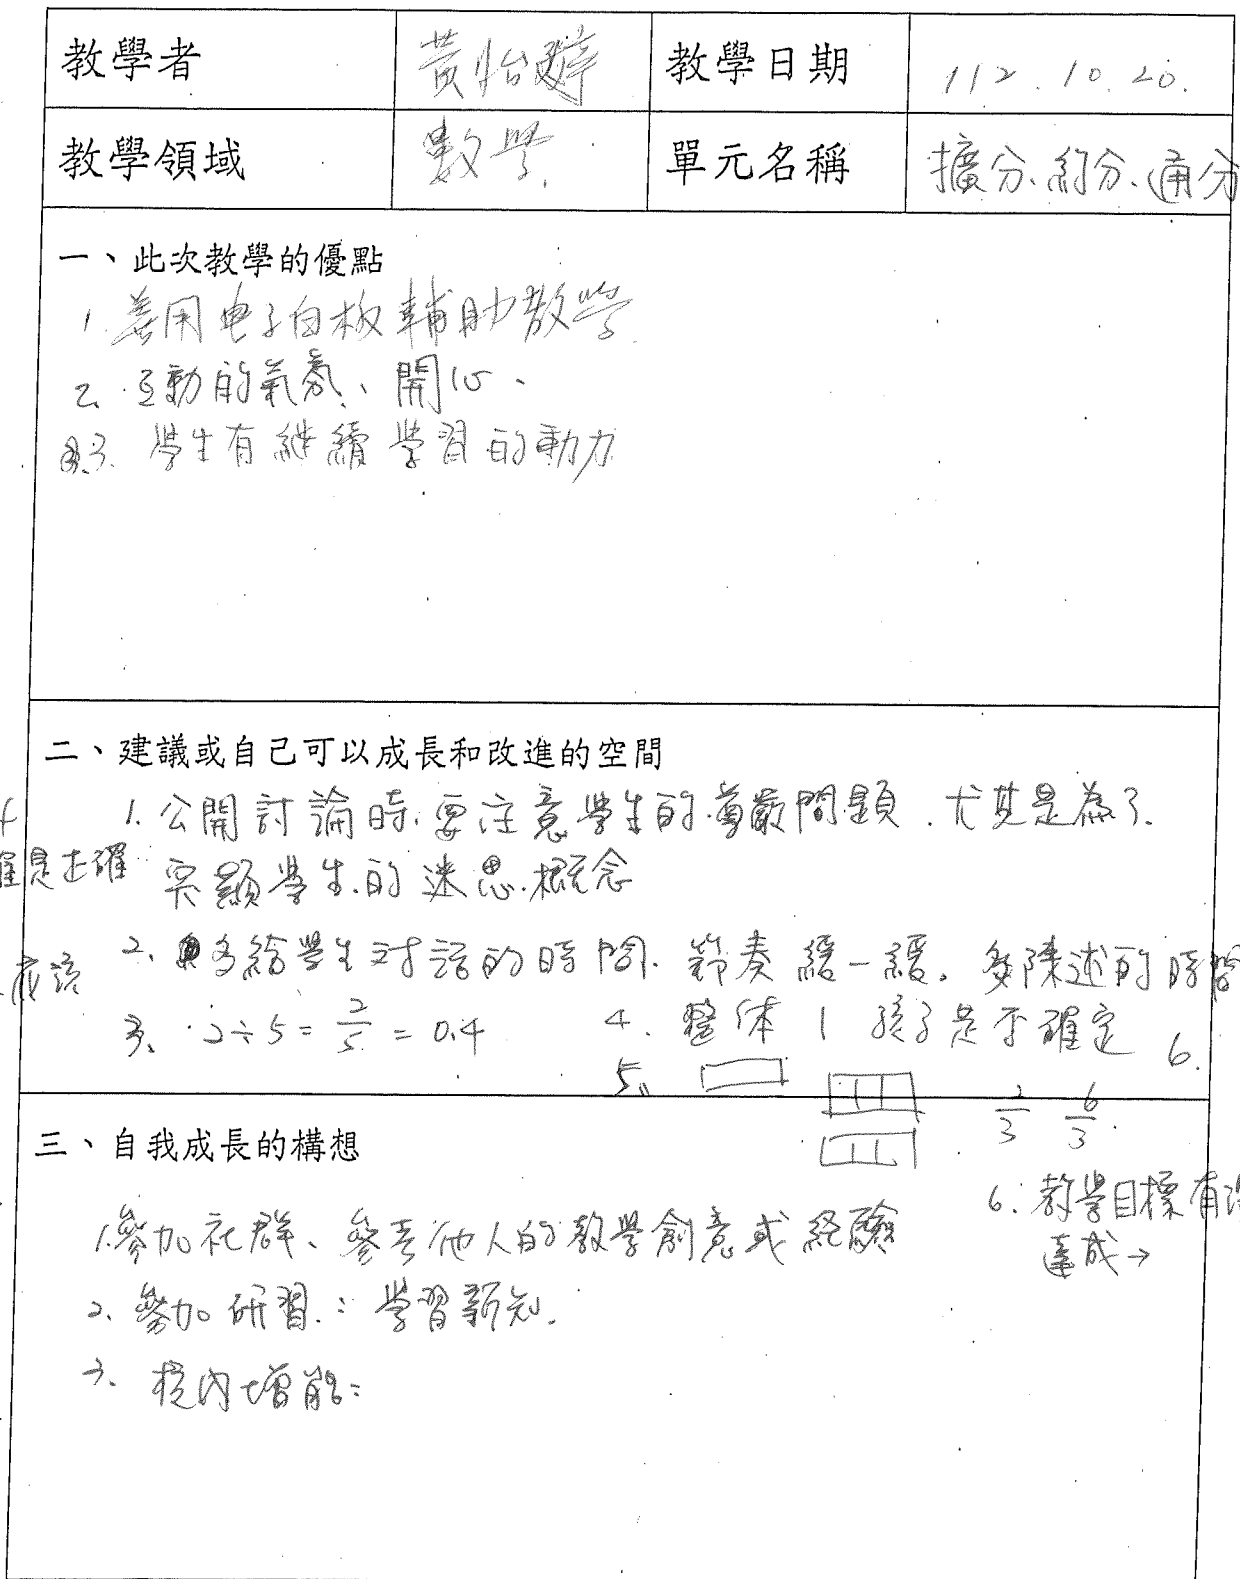 教學者 黃怡婷 教學日期 112.10.20.
教學領域 數學. 單元名稱 擴分、約分、通分
一、此次教學的優點
1. 善用电子白板輔助教學.
2. 互動的氣氛、開心、
3. 學生有継續學習的動力
二、建議或自己可以成長和改進的空間
1. 公開討論時,要注意學生的尊嚴問題.尤其是為了.
突顯學生的迷思概念
2. 多給學生对話的時間. 節奏緩一緩。多陳述的時間
应該
3. 2÷5=2/5=0.4 4. 整体 1 孩子是否確定 6.
5.
2/3 6/3.
三、自我成長的構想
6. 教學目標有沒
達成→
1.參加社群、參考他人的教學創意或経驗
2. 參加研習:學習新知.
3. 校內增能: